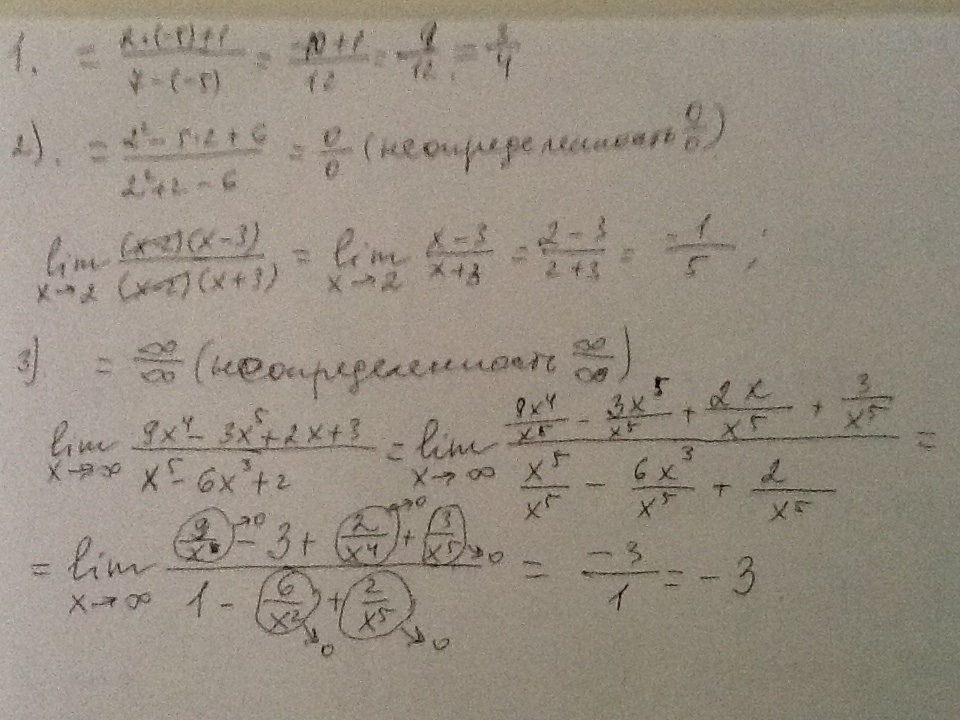 1. = (2·(-5)+1)/(7-(-5)) = (-10+1)/12 = -9/12 = 3/4
2). = (2²-5·2+6)/(2²+2-6) = 0/0 (неопределенность 0/0)
lim x→2 (x-2)(x-3)/(x-2)(x+3) = lim x→2 (x-3)/(x+3) = (2-3)/(2+3) = -1/5 ;
3) = ∞/∞ (неопределенность ∞/∞)
lim x→∞ (9x⁴-3x⁵+2x+3)/(x⁵-6x³+2) = lim x→∞ (9x⁴/x⁵ - 3x⁵/x⁵ + 2x/x⁵ + 3/x⁵)/(x⁵/x⁵ - 6x³/x⁵ + 2/x⁵) =
= lim x→∞ (9/x →0 - 3 + 2/x⁴ →0 + 3/x⁵ →0)/(1 - 6/x² →0 + 2/x⁵ →0) = -3/1 = -3